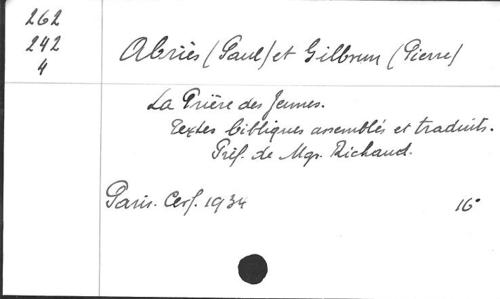 262
242
4
Abriès (Paul) et Gilbrun (Pierre)
La Prière des Jeunes.
Textes bibliques assemblés et traduits.
Préf. de Mgr. Richaud.
Paris. Cerf. 1934 16°